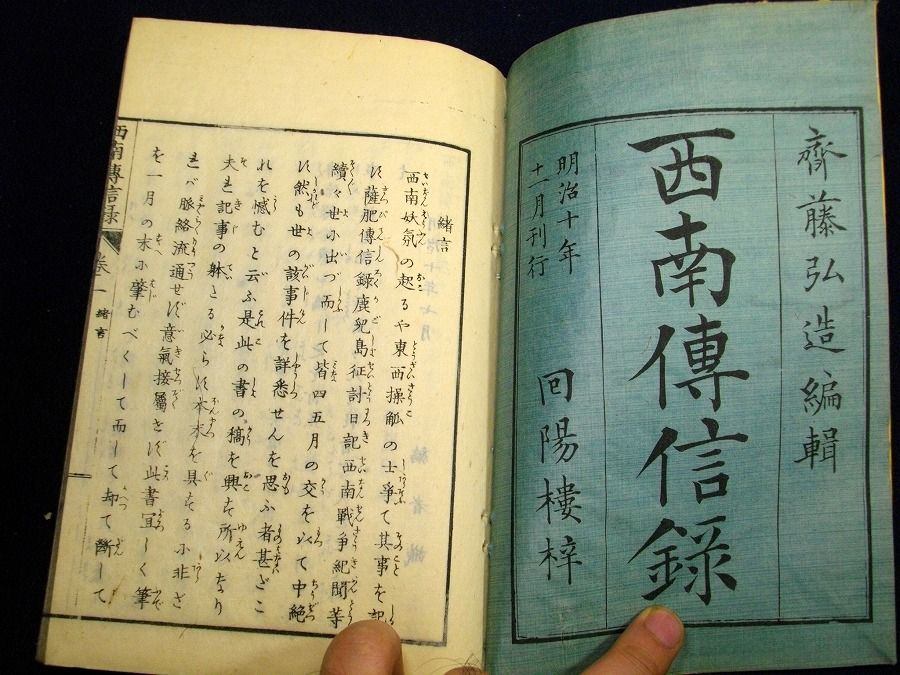 齋藤弘造編輯
西南傳信錄
明治十年
十一月刊行
回陽樓梓
緒言
西南妖氛の起るや東西操觚の士爭て其事を記
し薩肥傳信録鹿兒島征討日記西南戰爭紀聞等
續々世に出づ而して皆四五月の交を以て中絶
す然も世の該事件を詳悉せんを思ふ者甚どこ
れを憾むと云ふ是此の書の稿を興す所以なり
夫レ記事の躰さる必らず本末を具する小非ざ
れバ脈絡流通せず意氣接屬せず此書宜しく筆
を一月の末に肇むべくして而して却て斷して
西南傳信録
卷一
緒言